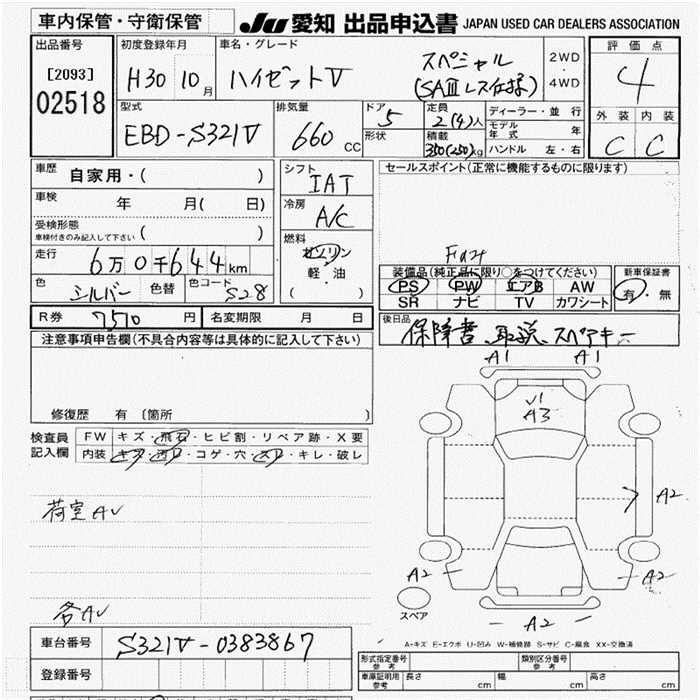 車内保管・守衛保管
JU 愛知 出品申込書 JAPAN USED CAR DEALERS ASSOCIATION
出品番号
[2093]
02518
初度登録年月
H30 10月
車名・グレード
ハイゼットV
スペシャル
(SAⅢレス仕様)
2WD
・
4WD
評価点
4
外装 内装
C C
型式
EBD-S321V
排気量
660 cc
ドア
5
形状
定員
2(4)人
積載
350(250)kg
ディーラー・並行
モデル年式 年
ハンドル 左・右
車歴
自家用・( )
車検
年 月( 日)
受検形態
車検付きのみ記入して下さい ( )
走行
6万0千644km
色
シルバー
色替
色コード
S28
シフト
IAT
冷房
A/C
燃料
ガソリン
軽・油
( )
セールスポイント(正常に機能するものに限ります)
装備品(純正品に限り○をつけてください)
PS PW エアB AW
SR ナビ TV カワシート
新車保証書
有・無
R券 7510 円
名変期限 月 日
後日品
保障書、取説、スペアキー
注意事項申告欄(不具合内容等は具体的に記入して下さい)
修復歴 有 〔箇所 〕
検査員記入欄
FW キズ・飛石・ヒビ割・リペア跡・X要
内装 キズ・汚レ・コゲ・穴・スレ・キレ・破レ
荷室AV
各AV
A1 A1
A3
A2
A2 A2
A2
スペア
A-キズ E-エクボ U-凹み W-補修跡 S-サビ C-腐食 XX-交換済
車台番号 S321V-0383867
登録番号
形式指定番号 参考
類別区分番号 参考
車庫証明用 参考 長さ cm 幅 cm 高さ cm